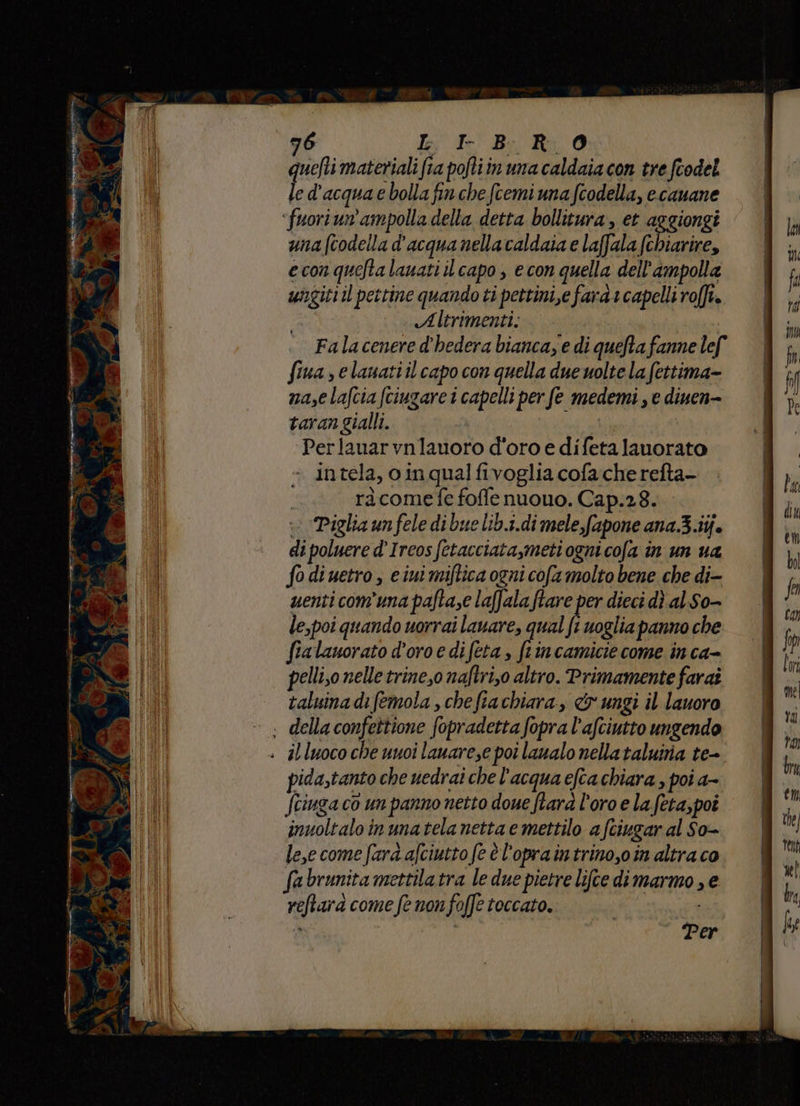 96 L I B R O
questi materiali sia posti in una caldaia con tre scodel
le d'acqua e bolla fin che scemi una scodella, e cauane
fuori un'ampolla della detta bollitura, et aggiongi
una scodella d'acqua nella caldaia e lassala schiarire,
e con questa lauati il capo, e con quella dell'ampolla
ungiti il pettine quando ti pettini,e farà i capelli rossi.
Altrimenti.
Fa la cenere d'hedera bianca, e di questa fanne les
siua, e lauati il capo con quella due uolte la settima-
na,e lascia sciugare i capelli per se medemi, e diuen-
taran gialli.
Per lauar vn lauoro d'oro e di seta lauorato
in tela, o in qual si voglia cosa che resta-
rà come se fosse nuouo. Cap.28.
Piglia un fele di bue lib.1.di mele,sapone ana.3.iij.
di poluere d'Ireos setacciata,meti ogni cosa in un ua
so di uetro, e iui mistica ogni cosa molto bene che di-
uenti com'una pasta,e lassala stare per dieci dì al So-
le,poi quando uorrai lauare, qual si uoglia panno che
sia lauorato d'oro e di seta, si in camicie come in ca-
pelli,o nelle trine,o nastri,o altro. Primamente farai
taluina di semola, che sia chiara, & ungi il lauoro
della confettione sopradetta sopra l'asciutto ungendo
il luoco che uuoi lauare,e poi laualo nella taluina te-
pida,tanto che uedrai che l'acqua esca chiara, poi a-
sciuga cō un panno netto doue starà l'oro e la seta,poi
inuoltalo in una tela netta e mettilo a sciugar al So-
le,e come sarà asciutto se è l'opra in trino,o in altra co
sa brunita mettila tra le due pietre lisce di marmo, e
restarà come se non fosse toccato.
Per